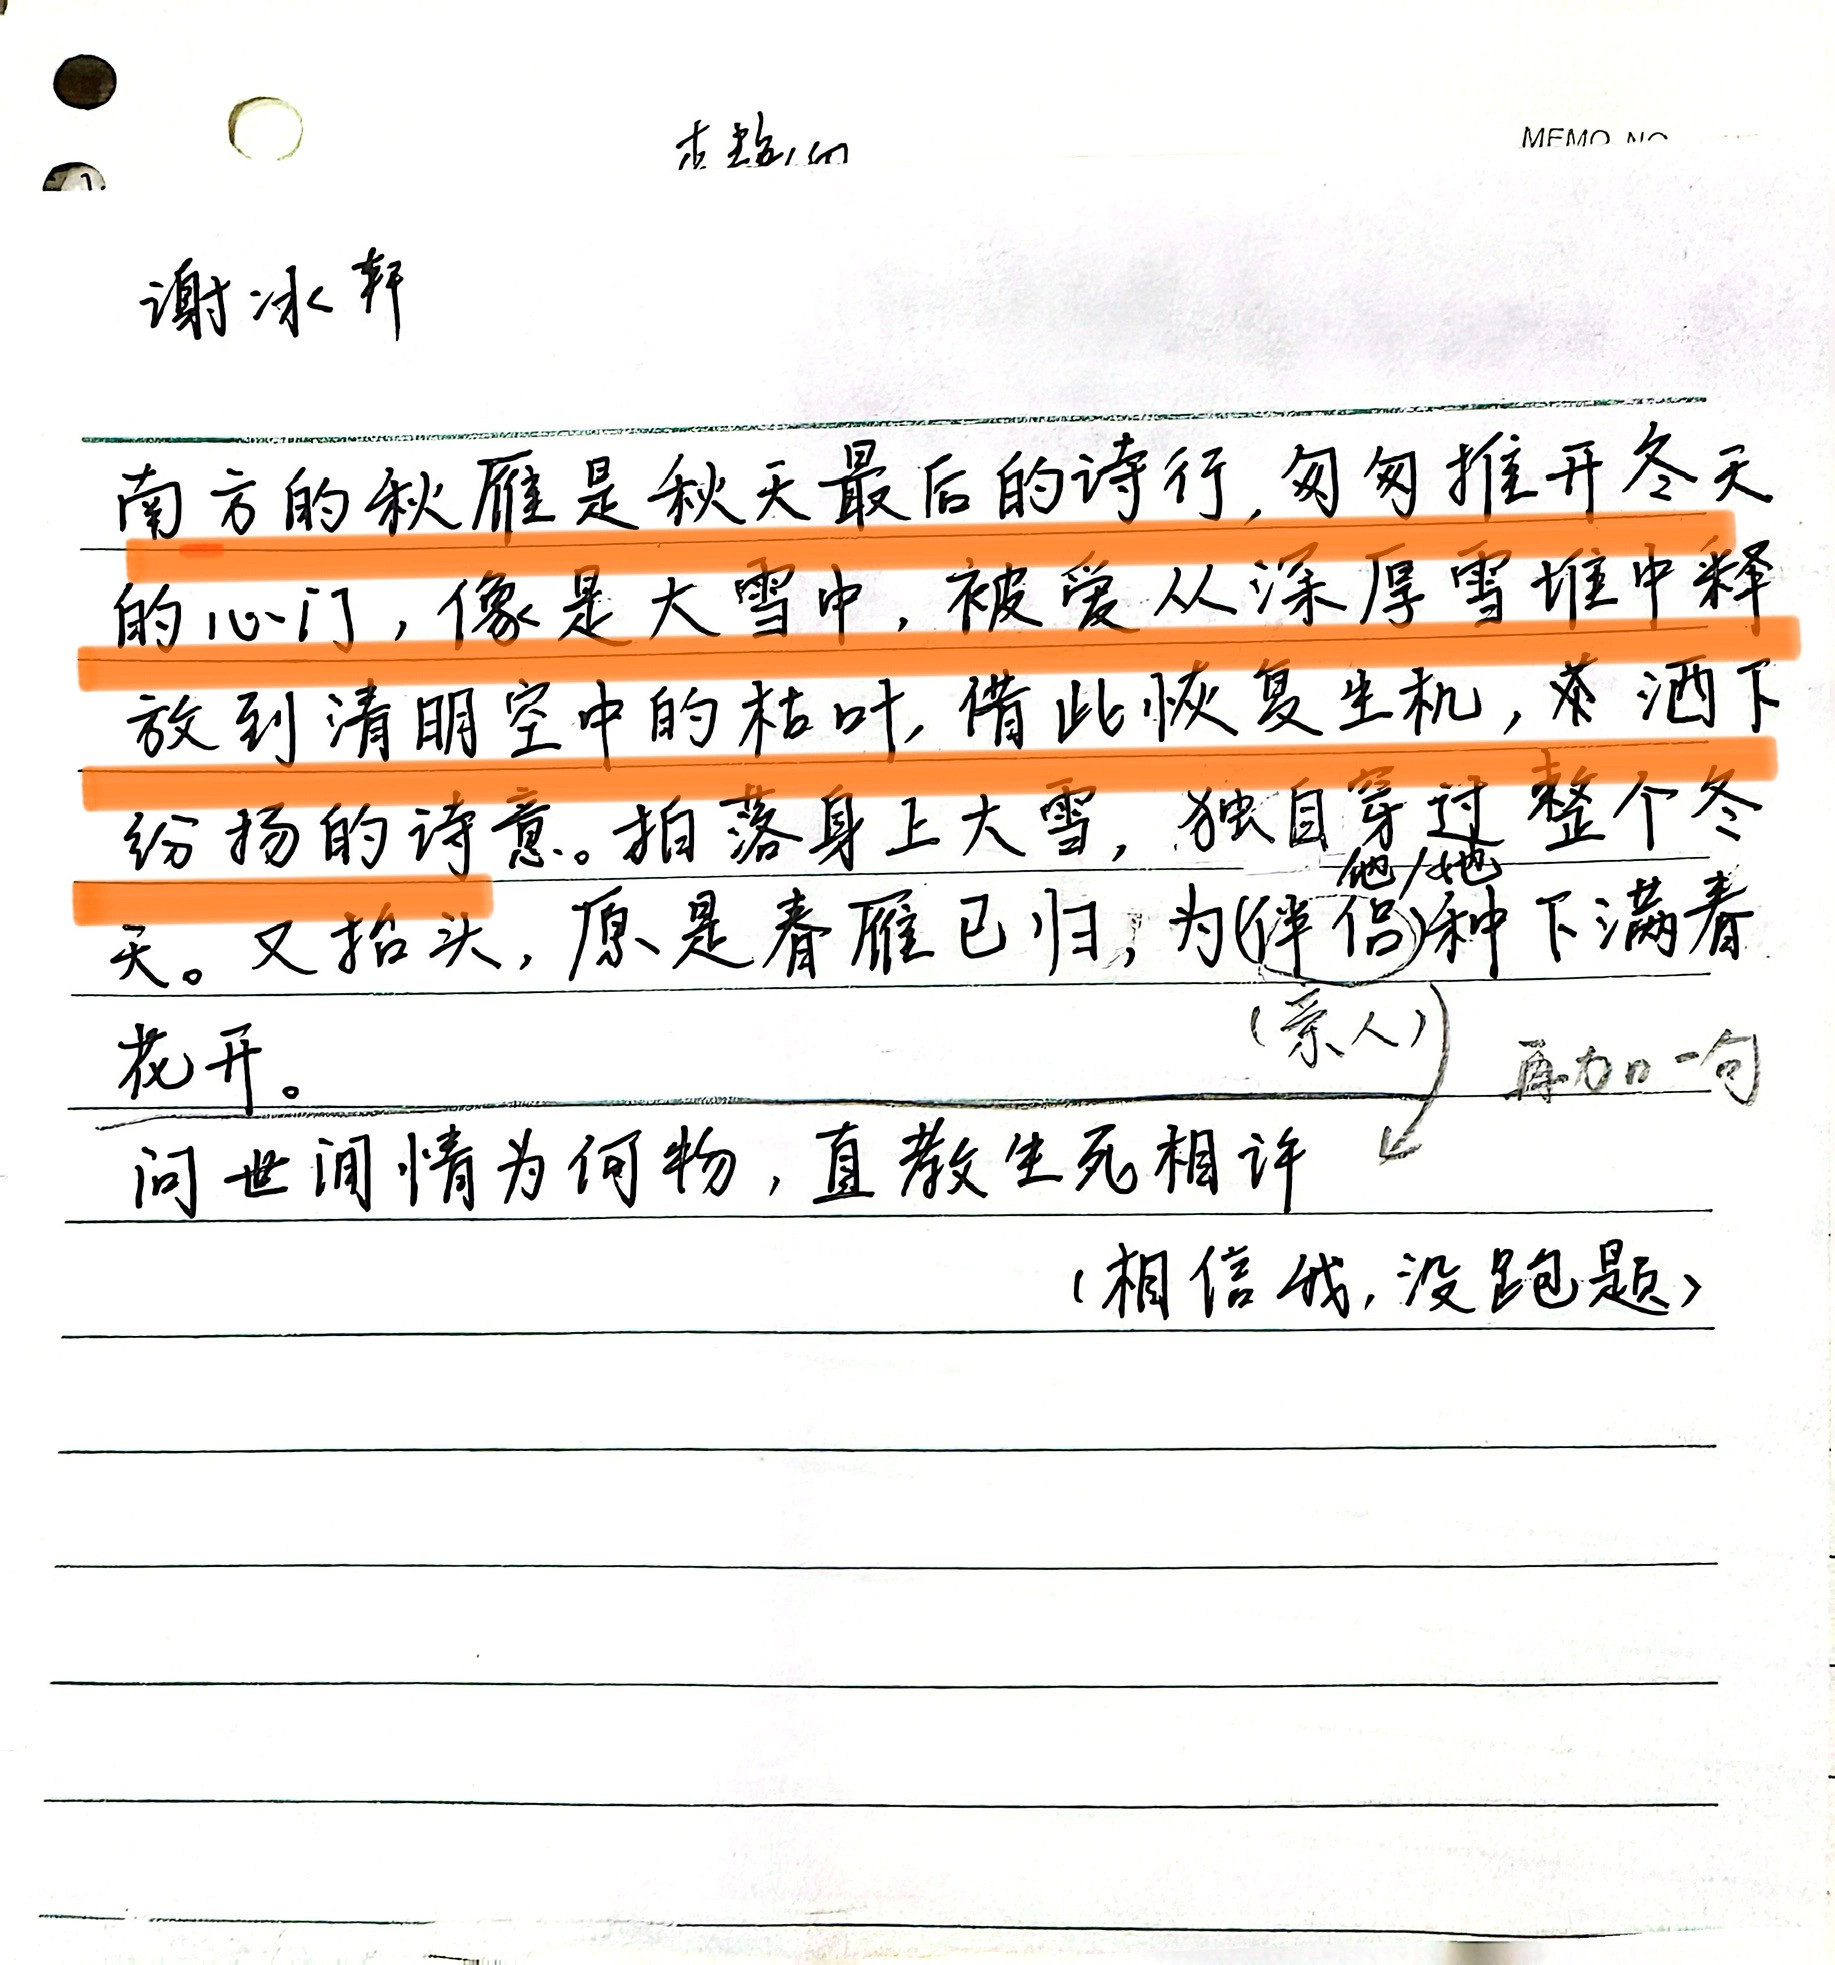 MEMO NO
谢冰轩
南方的秋雁是秋天最后的诗行,匆匆推开冬天
的心门,像是大雪中,被爱从深厚雪堆中释
放到清明空中的枯叶,借此恢复生机,洒下
纷扬的诗意。拍落身上大雪,独自穿过整个冬
他/她
天。又抬头,原是春雁已归,为(伴侣)种下满春
(亲人)
花开。
再加一句
问世间情为何物,直教生死相许
(相信我,没跑题)